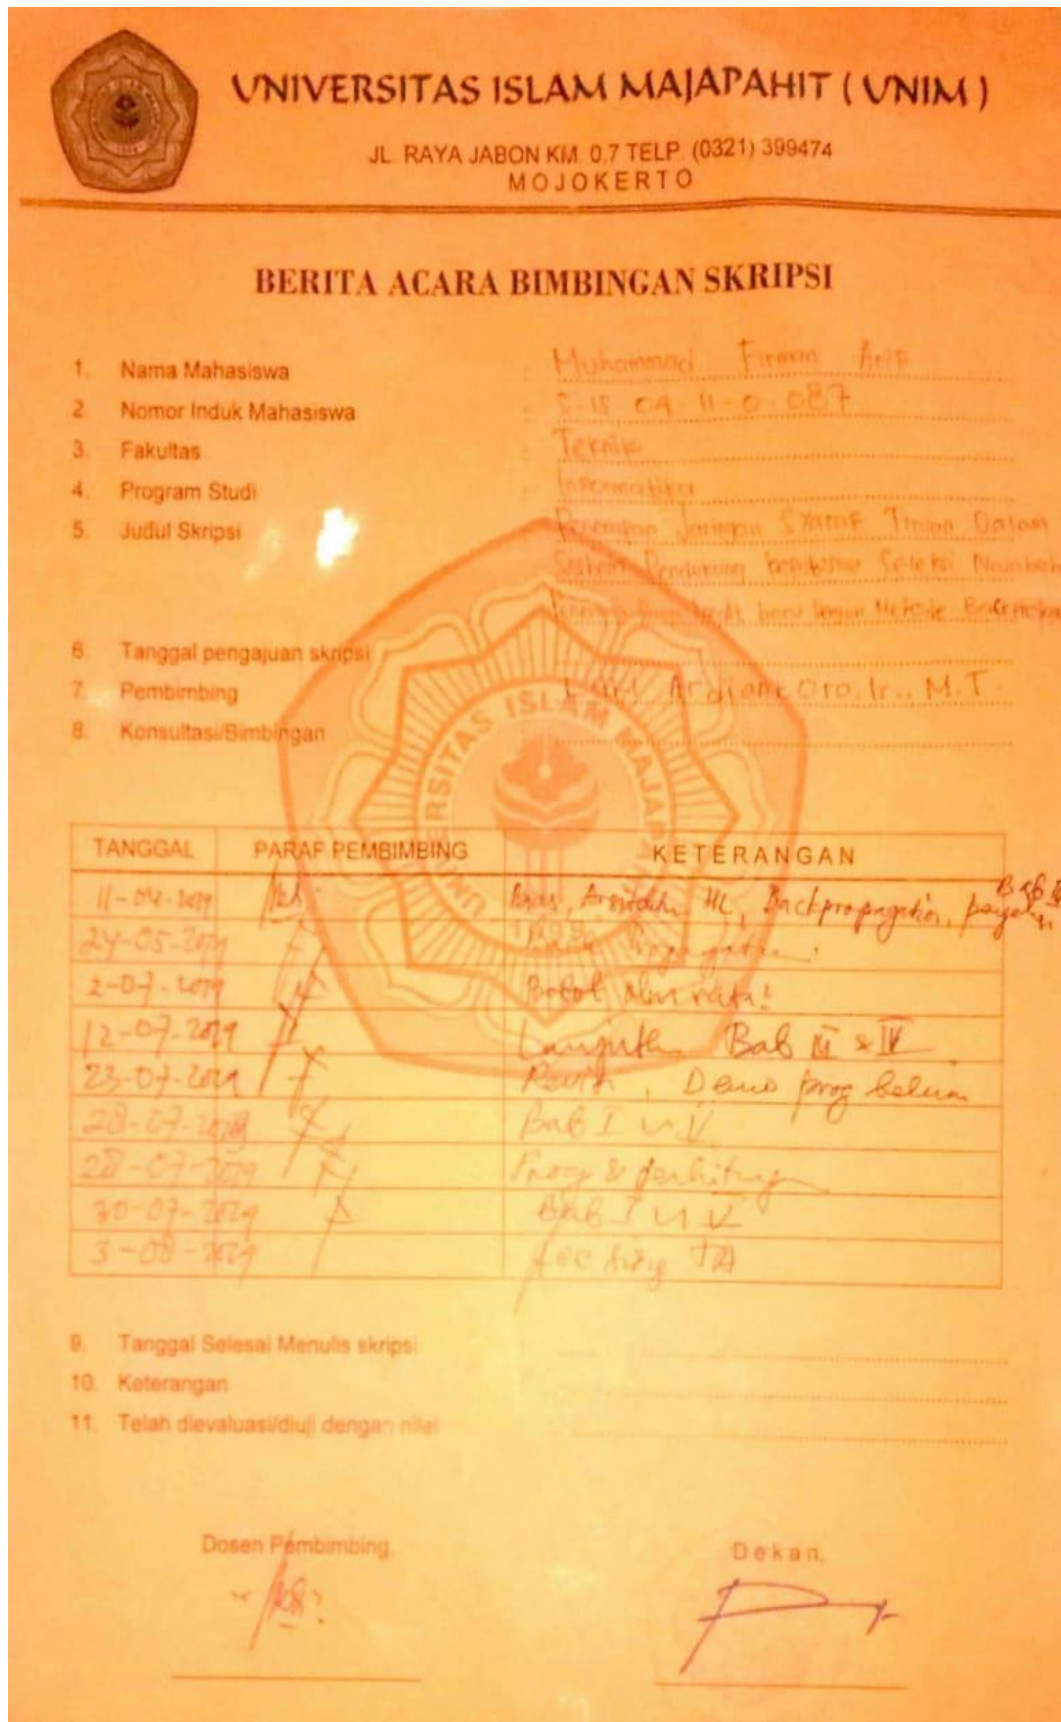 UNIVERSITAS ISLAM MAJAPAHIT ( UNIM )
JL. RAYA JABON KM. 0,7 TELP. (0321) 399474
MOJOKERTO
BERITA ACARA BIMBINGAN SKRIPSI
1. Nama Mahasiswa : Muhammad Firman Arif
2. Nomor Induk Mahasiswa : 5-15-04-11-0-087
3. Fakultas : Teknik
4. Program Studi : Informatika
5. Judul Skripsi : Penerapan Jaringan Syaraf Tiruan Dalam
Sistem Pendukung Keputusan Seleksi Nasabah
Metode
6. Tanggal pengajuan skripsi
7. Pembimbing Ardiantoro, Ir., M.T.
8. Konsultasi/Bimbingan
UNIVERSITAS ISLAM MAJAPAHIT
TANGGAL PARAF PEMBIMBING KETERANGAN
11-04-2019 Backpropagation, Bab
24-05-2019
2-07-2019 Bobot
12-07-2019 Bab III & IV
23-07-2019 Demo prog belum
28-07-2019 Bab I V
28-07-2019 Prog &
30-07-2019 Bab I V
3-08-2019 TA
9. Tanggal Selesai Menulis skripsi
10. Keterangan
11. Telah dievaluasi/diuji dengan nilai
Dosen Pembimbing, Dekan,